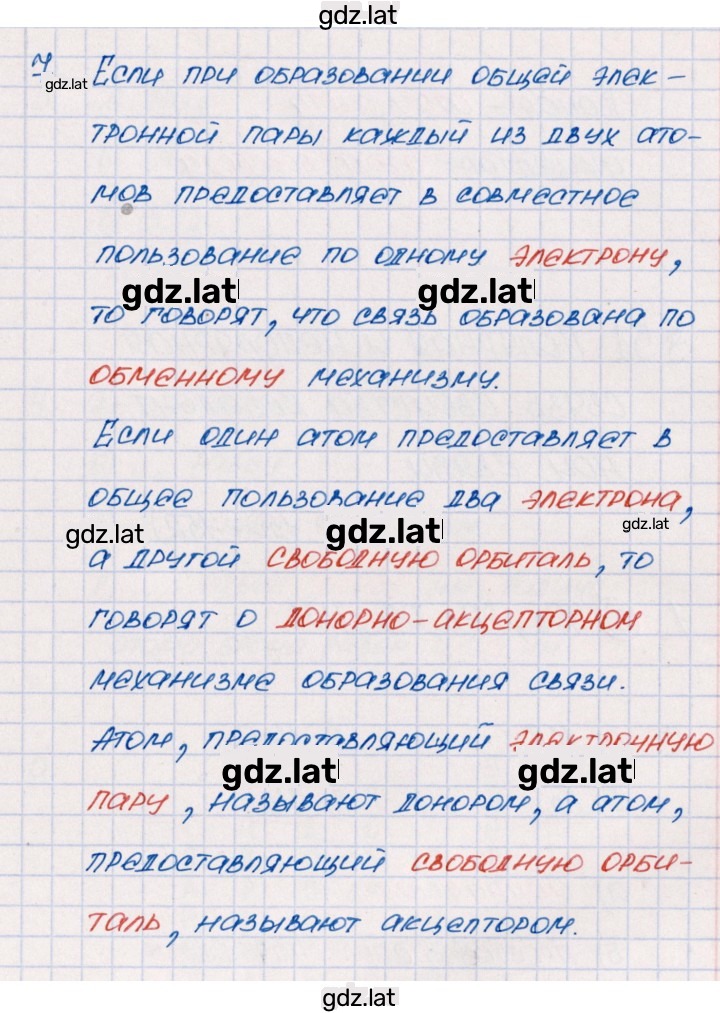 gdz.lat
7.
gdz.lat
Если при образовании общей элек-
тронной пары каждый из двух ато-
мов предоставляет в совместное
пользование по одному электрону,
gdz.lat gdz.lat
то говорят, что связь образована по
обменному механизму.
Если один атом предоставляет в
общее пользование два электрона,
gdz.lat gdz.lat gdz.lat
а другой свободную орбиталь, то
говорят о донорно-акцепторном
механизме образования связи.
Атом, предоставляющий электронную
gdz.lat gdz.lat
пару, называют донором, а атом,
предоставляющий свободную орби-
таль, называют акцептором.
gdz.lat